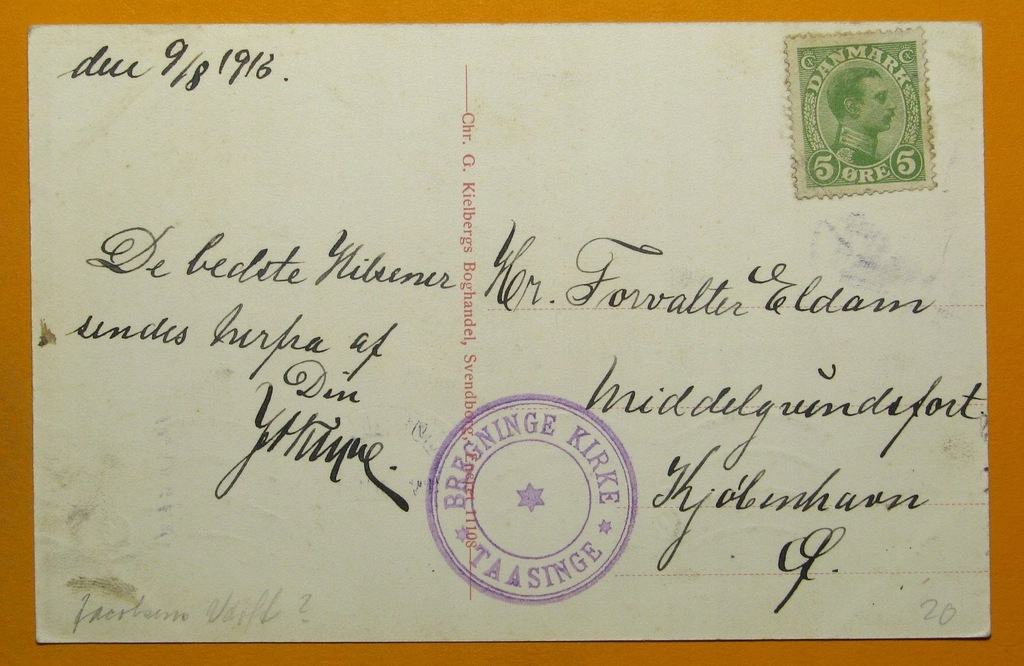 den 9/8 1916.
De bedste Hilsener
sendes herfra af
Din
Chr. G. Kielbergs Boghandel, Svendborg, Eneret 11108
DANMARK
5 ØRE 5
Hr. Forvalter Eldam
Middelgrundsfort
Kjøbenhavn
Ø.
BREGNINGE KIRKE
TAASINGE
Jacobsens Værft ?
20